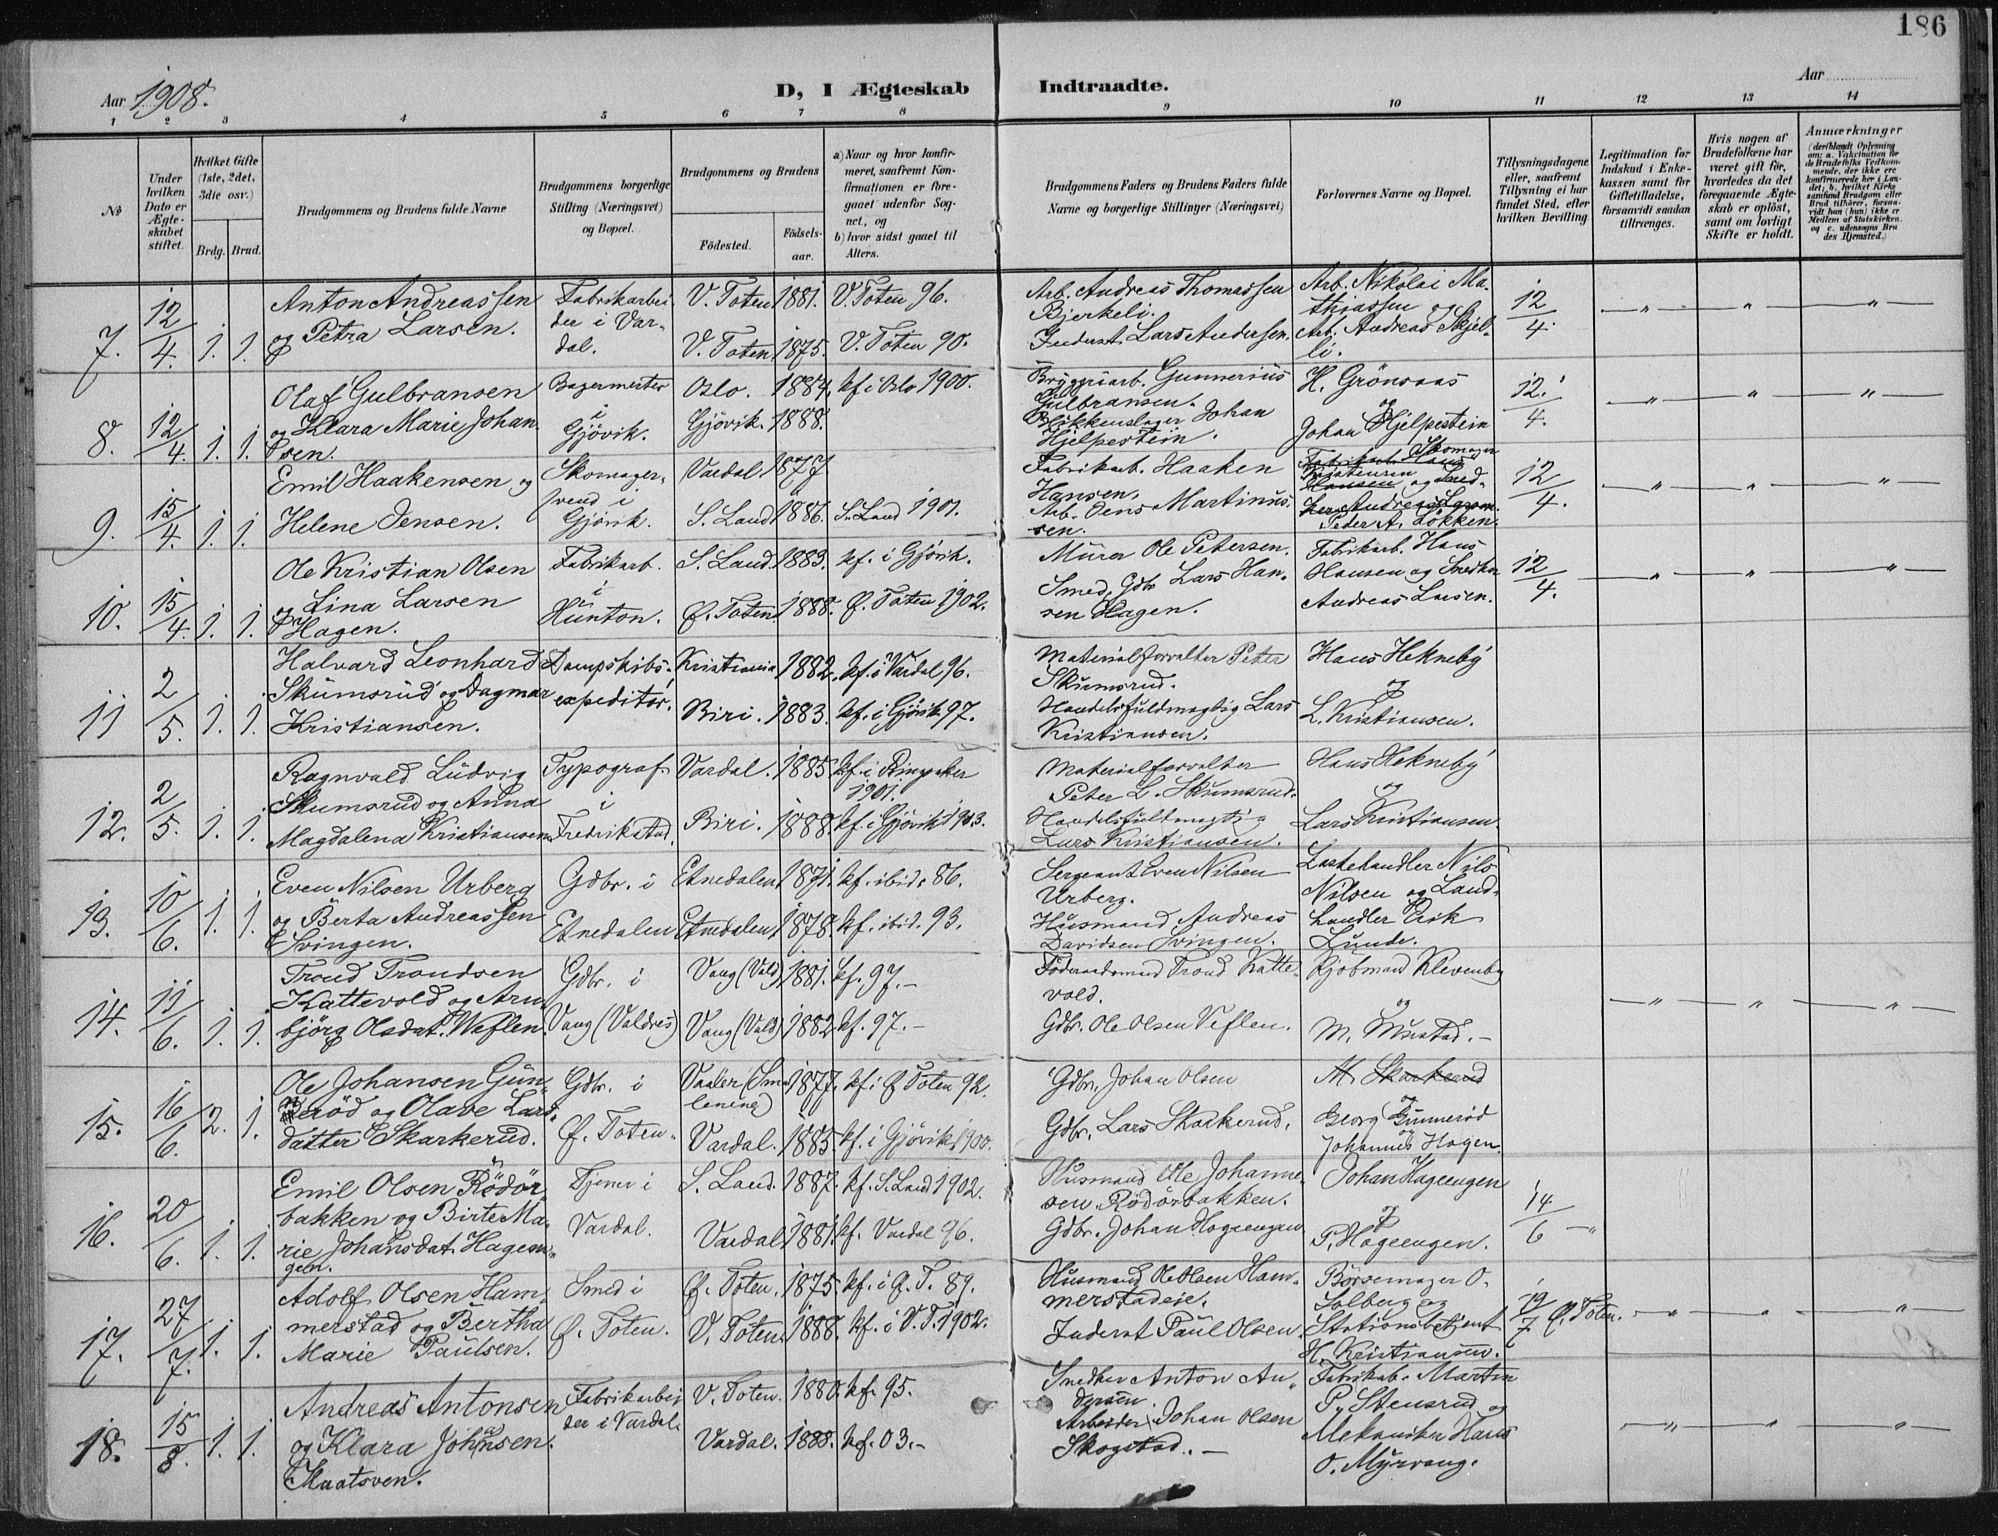 186
Aar 1908.
D, I Ægteskab Indtraadte.
Aar
1 2 3 4 5 6 7 8 9 10 11 12 13 14
№
Under hvilken Dato er Ægteskabet stiftet.
Hvilket Gifte (1ste, 2det, 3die osv.)
Brdg. Brud.
Brudgommens og Brudens fulde Navne
Brudgommens borgerlige Stilling (Næringsvei) og Bopæl.
Brudgommens og Brudens
Födested. Födselsaar.
a) Naar og hvor konfirmeret, saafremt Konfirmationen er foregaaet udenfor Sognet, og
b) hvor sidst gaaet til Alters.
Brudgommens Faders og Brudens Faders fulde Navne og borgerlige Stillinger (Næringsvei)
Forlovernes Navne og Bopæl.
Tillysningsdagene eller, saafremt Tillysning ei har fundet Sted, efter hvilken Bevilling
Legitimation for Indskud i Enkekassen samt for Giftetilladelse, forsaavidt saadan tiltrænges.
Hvis nogen af Brudefolkene har været gift før, hvorledes da det foregaaende Ægteskab er oplöst, samt om lovligt Skifte er holdt.
Anmærkninger
(deriblandt Oplysning om: a. Vakcination for de Brudefolks Vedkommende, der ikke ere konfirmerede her i Landet; b. hvilket Kirkesamfund Brudgom eller Brud tilhörer, forsaavidt han (hun) ikke er Medlem af Statskirken. og c. udensogns Brudes Hjemsted.)
7. 12/4. 1. 1. Anton Andreassen og Petra Larsen. Fabrikarbeider i Vardal. V. Toten 1881. V. Toten 96.
V. Toten 1875. V. Toten 90.
Arb. Andreas Thomassen Bjerkeli.
Inderst Lars Andersen.
Arb. Nikolai Mathiassen og Arb. Andreas Skjelli. 12/4. — „ — „ — „ —
8. 12/4. 1. 1. Olaf Gulbransen og Klara Marie Johansen. Bagermester i Gjövik. Oslo. 1884. kf. i Oslo 1900.
Gjövik. 1888.
Bryggeriarb. Gunnerius Gulbransen.
Blikkenslager Johan Hjelpestein.
H. Grönaas og Johan Hjelpestein 12/4. — „ — „ — „ —
9. 15/4. 1. 1. Emil Haakensen og Helene Jensen. Skomagersvend i Gjövik. Vardal. 1877
S. Land 1886. S. Land 1901.
Fabrikarb. Haaken Hansen.
Arb. Jens Martinussen.
Skomager
Peder A. Lökken. 12/4. — „ — „ — „ —
10. 15/4. 1. 1. Ole Kristian Olsen og Lina Larsen Hagen. Fabrikarb. i Hunton. S. Land. 1883. kf. i Gjövik.
Ø. Toten 1888. Ø. Toten 1902.
Murer Ole Petersen.
Smed, Gdbr Lars Hansen Hagen.
Fabrikarb. Hans Hansen og Snedker Andreas Larsen. 12/4. — „ — „ — „ —
11 2/5. 1. 1. Halvard Leonhard Skumsrud og Dagmar Kristiansen. Dampskibsexpeditör. Kristiania 1882. kf. i Vardal 96.
Biri. 1883. kf. i Gjövik 97.
Materialforvalter Peter Skumsrud.
Handelsfuldmægtig Lars Kristiansen.
Hans Hekneby og L. Kristiansen.
12. 2/5. 1. 1. Ragnvald Ludvig Skumsrud og Anna Magdalena Kristiansen Typograf i Fredrikstad. Vardal. 1885. kf. i Ringsaker 1901.
Biri. 1888. kf. i Gjövik 1903.
Materialforvalter Peter L. Skumsrud.
Handelsfuldmægtig Lars Kristiansen.
Hans Hekneby og Lars Kristiansen.
13. 10/6. 1. 1. Even Nilsen Urberg og Berta Andreassen Svingen. Gdbr. i Etnedalen Etnedalen 1871. kf. ibid. 86.
Etnedalen 1878. kf. ibid. 93.
Sergeant Even Nilsen Urberg.
Husmand Andreas Davidsen Svingen.
Nils Nilsen og Landhandler Erik Lunde.
14. 11/6. 1. 1. Trond Trondsen Kattevold og Arnbjörg Olsdat. Weflen. Gdbr. i Vang (Valdres) Vang (Vald) 1881. kf. 97. —
Vang (Vald) 1882 kf. 97. —
Föderaadsmand Trond Kattevold.
Gdbr. Ole Olsen Veflen.
Kjöbmand Klevenby og M. Mustad. —
— „ — „ — „ —
15. 16/6. 2. 1. Ole Johansen Gunneröd og Olave Larsdatter Skarkerud. Gdbr. i Ø. Toten. Vaaler (Smaalenene) 1877. kf. i Ø Toten 92.
Vardal. 1885. kf. i Gjövik 1900.
Gdbr. Johan Olsen
Gdbr. Lars Skarkerud.
M. Skarkerud og Georg Gunneröd og Johannes Hagen.
16. 20/6. 1. 1. Emil Olsen Rödörbakken og Birte Marie Johansdat. Hagemgen. Tjener i Vardal. S. Land. 1887. kf. S. Land 1902.
Vardal 1881. kf. Vardal 96.
Husmand Ole Johannesen Rödörbakken.
Gdbr. Johan Hageengen
Johan Hageengen og P. Hageengen. 14/6 — „
17. 27/7. 1. 1. Adolf Olsen Hammerstad og Bertha Marie Paulsen. Smed i Ø. Toten. Ø. Toten. 1875. kf. i Ø. T. 89.
V. Toten. 1888. kf. i V. T. 1902.
Husmand Ole Olsen Hammerstadeie.
Inderst Paul Olsen.
Börsemager O. Solberg og Stationsbetjent H. Kristiansen. 19/7 Ø. Toten. — „ — „ — „ —
18. 15/8. 1. 1. Andreas Antonsen og Klara Johansen Skaatsven. Fabrikarbeider i Vardal. V. Toten. 1880. kf. 95.
Vardal. 1888. kf. 03. —
Snedker Anton Andersen.
Arbeider Johan Olsen Skogstad. —
Fabrikarb. Martin P. Stensrud og Mekaniker Hans O. Myrvang.
— „ — „ — „ —